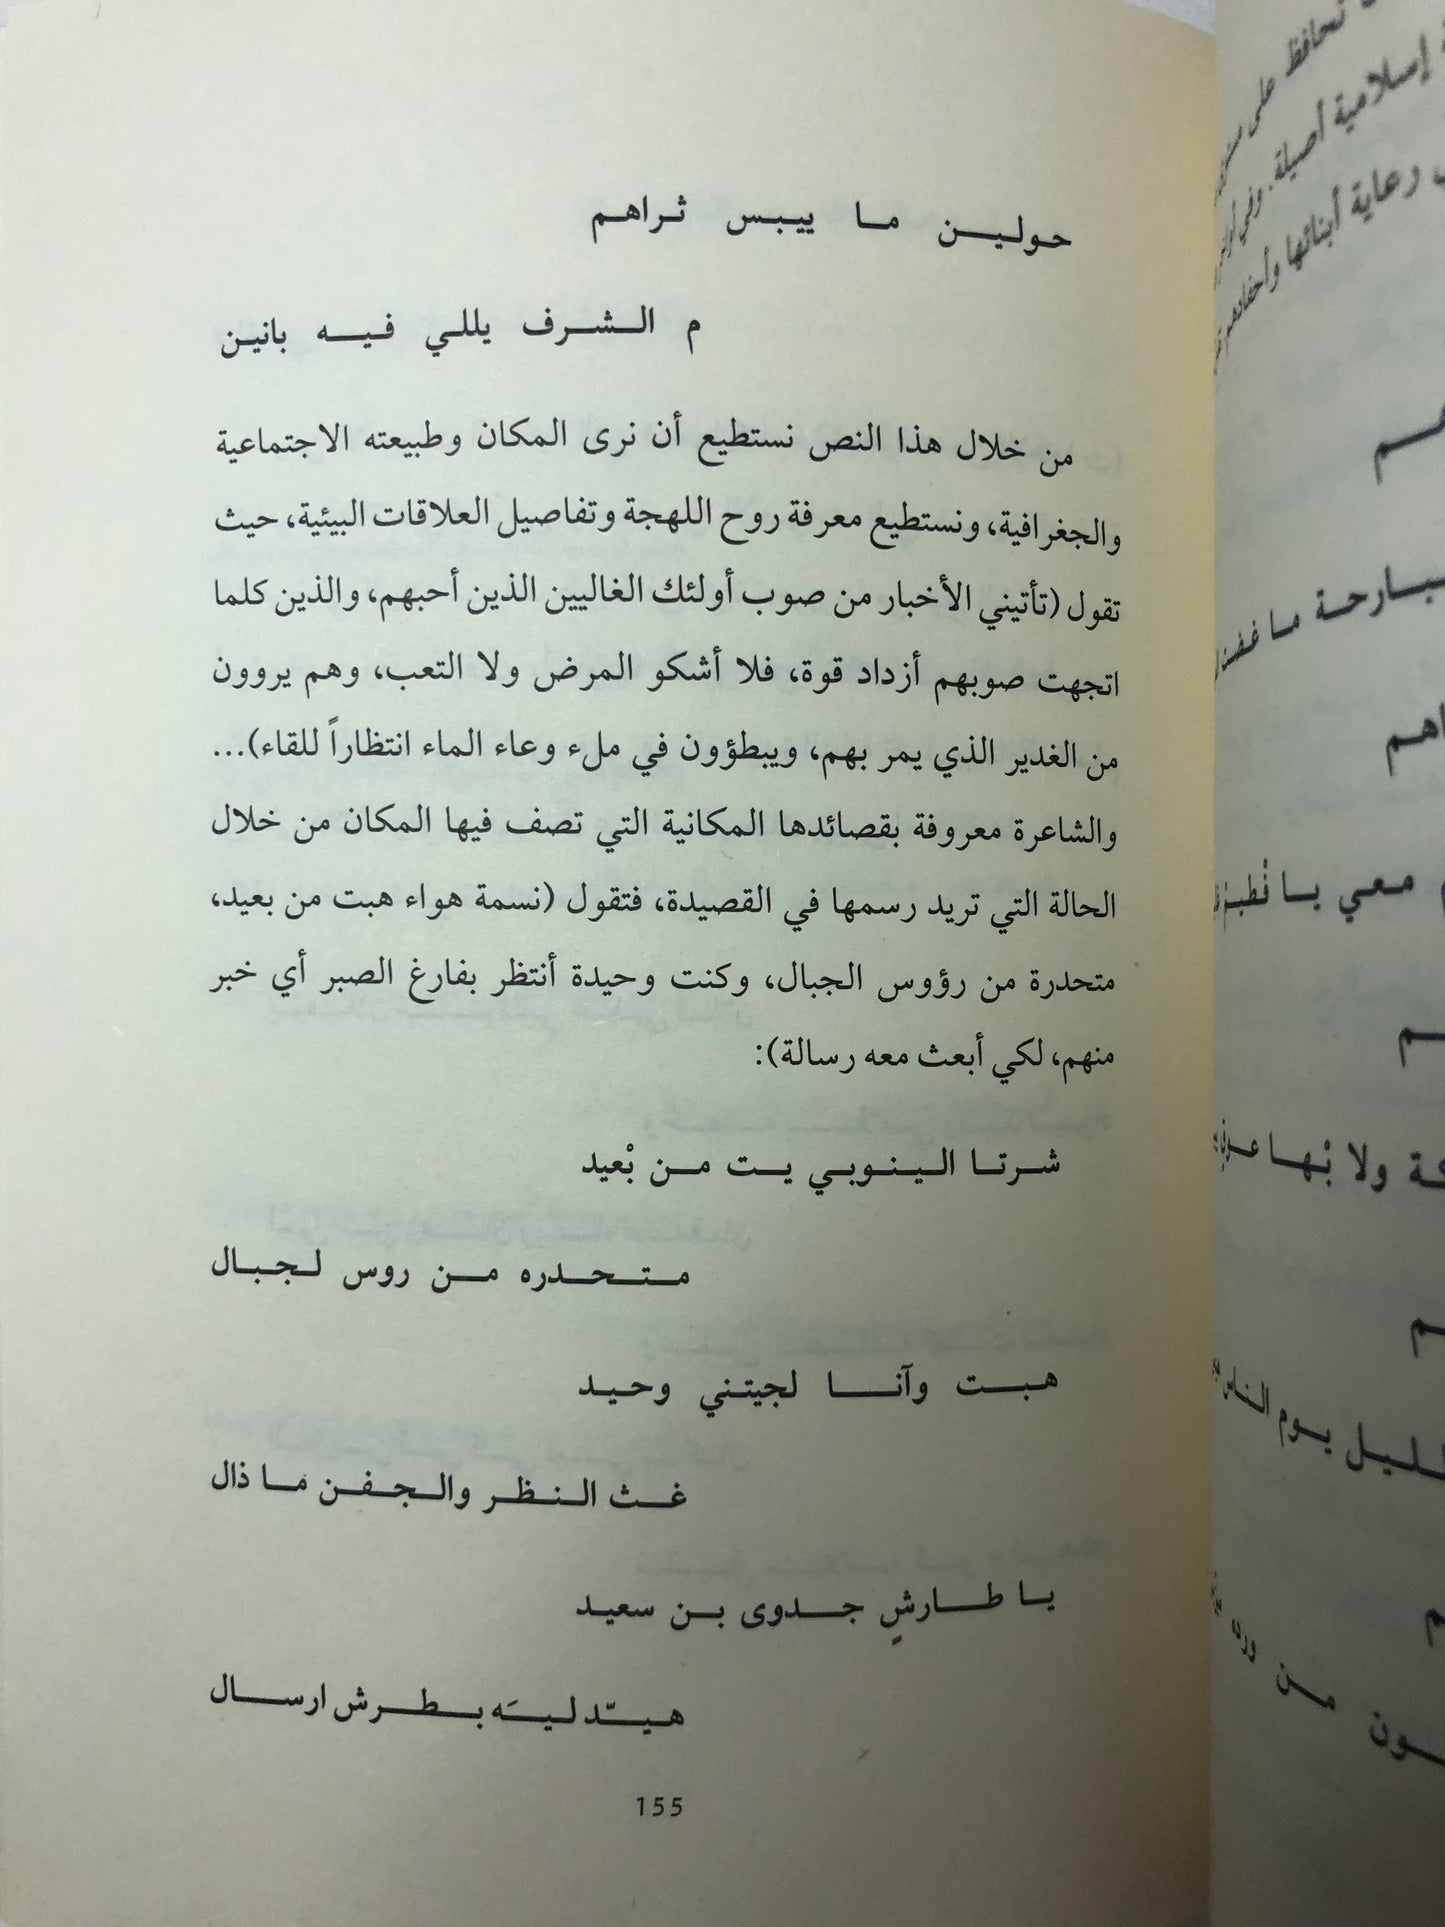 حولين ما ييبس ثراهم
م الشرف يللي فيه بانين
من خلال هذا النص نستطيع أن نرى المكان وطبيعته الاجتماعية
والجغرافية، ونستطيع معرفة روح اللهجة وتفاصيل العلاقات البيئية، حيث
تقول (تأتيني الأخبار من صوب أولئك الغاليين الذين أحبهم، والذين كلما
اتجهت صوبهم أزداد قوة، فلا أشكو المرض ولا التعب، وهم يروون
من الغدير الذي يمر بهم، ويبطؤون في ملء وعاء الماء انتظاراً للقاء)...
والشاعرة معروفة بقصائدها المكانية التي تصف فيها المكان من خلال
الحالة التي تريد رسمها في القصيدة، فتقول (نسمة هواء هبت من بعيد،
متحدرة من رؤوس الجبال، وكنت وحيدة أنتظر بفارغ الصبر أي خبر
منهم، لكي أبعث معه رسالة):
شرتا الينوبي يت من بْعيد
متحدره من روس لجبال
هبت وآنا لجيتني وحيد
غث النظر والجفن ما ذال
يا طارشٍ جدوى بن سعيد
هيّد ليَه بطرش ارسال
155
تحافظ على
إسلامية أصيلة. وفي
وعاية أبنائها وأحفادهم
ما غفت
معي يا
ولا بْها
يوم الناس
من ورد